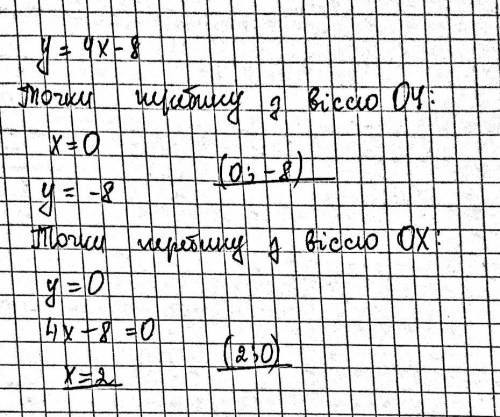 y = 4x - 8
Точки перетину з віссю OY:
x = 0
(0; -8)
y = -8
Точки перетину з віссю OX:
y = 0
4x - 8 = 0
(2; 0)
x = 2